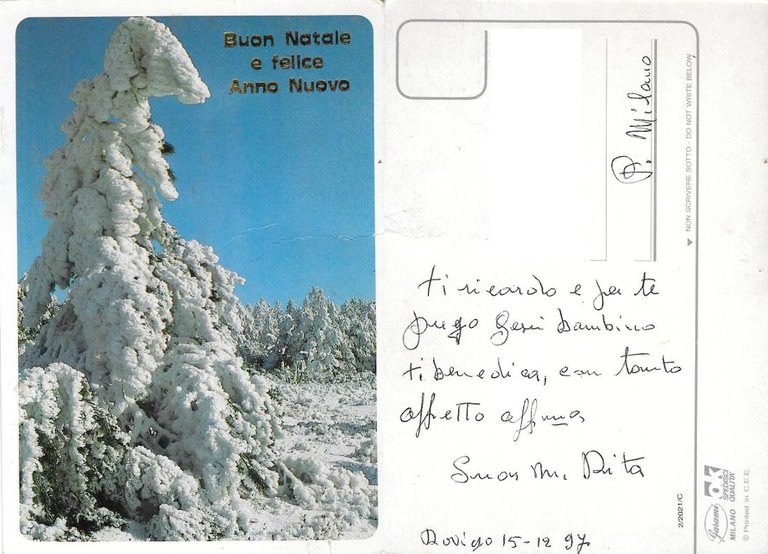 Buon Natale
e felice
Anno Nuovo
P. Milano
NON SCRIVERE SOTTO - DO NOT WRITE BELOW
ti ricordo e per te
prego Gesù bambino
ti benedica, con tanto
affetto aff.ma
Suor M. Rita
Rovigo 15-12 97
2/2021/C
Garami
MILANO
SPEDISCI
QUALITA'
© Printed in C.E.E.